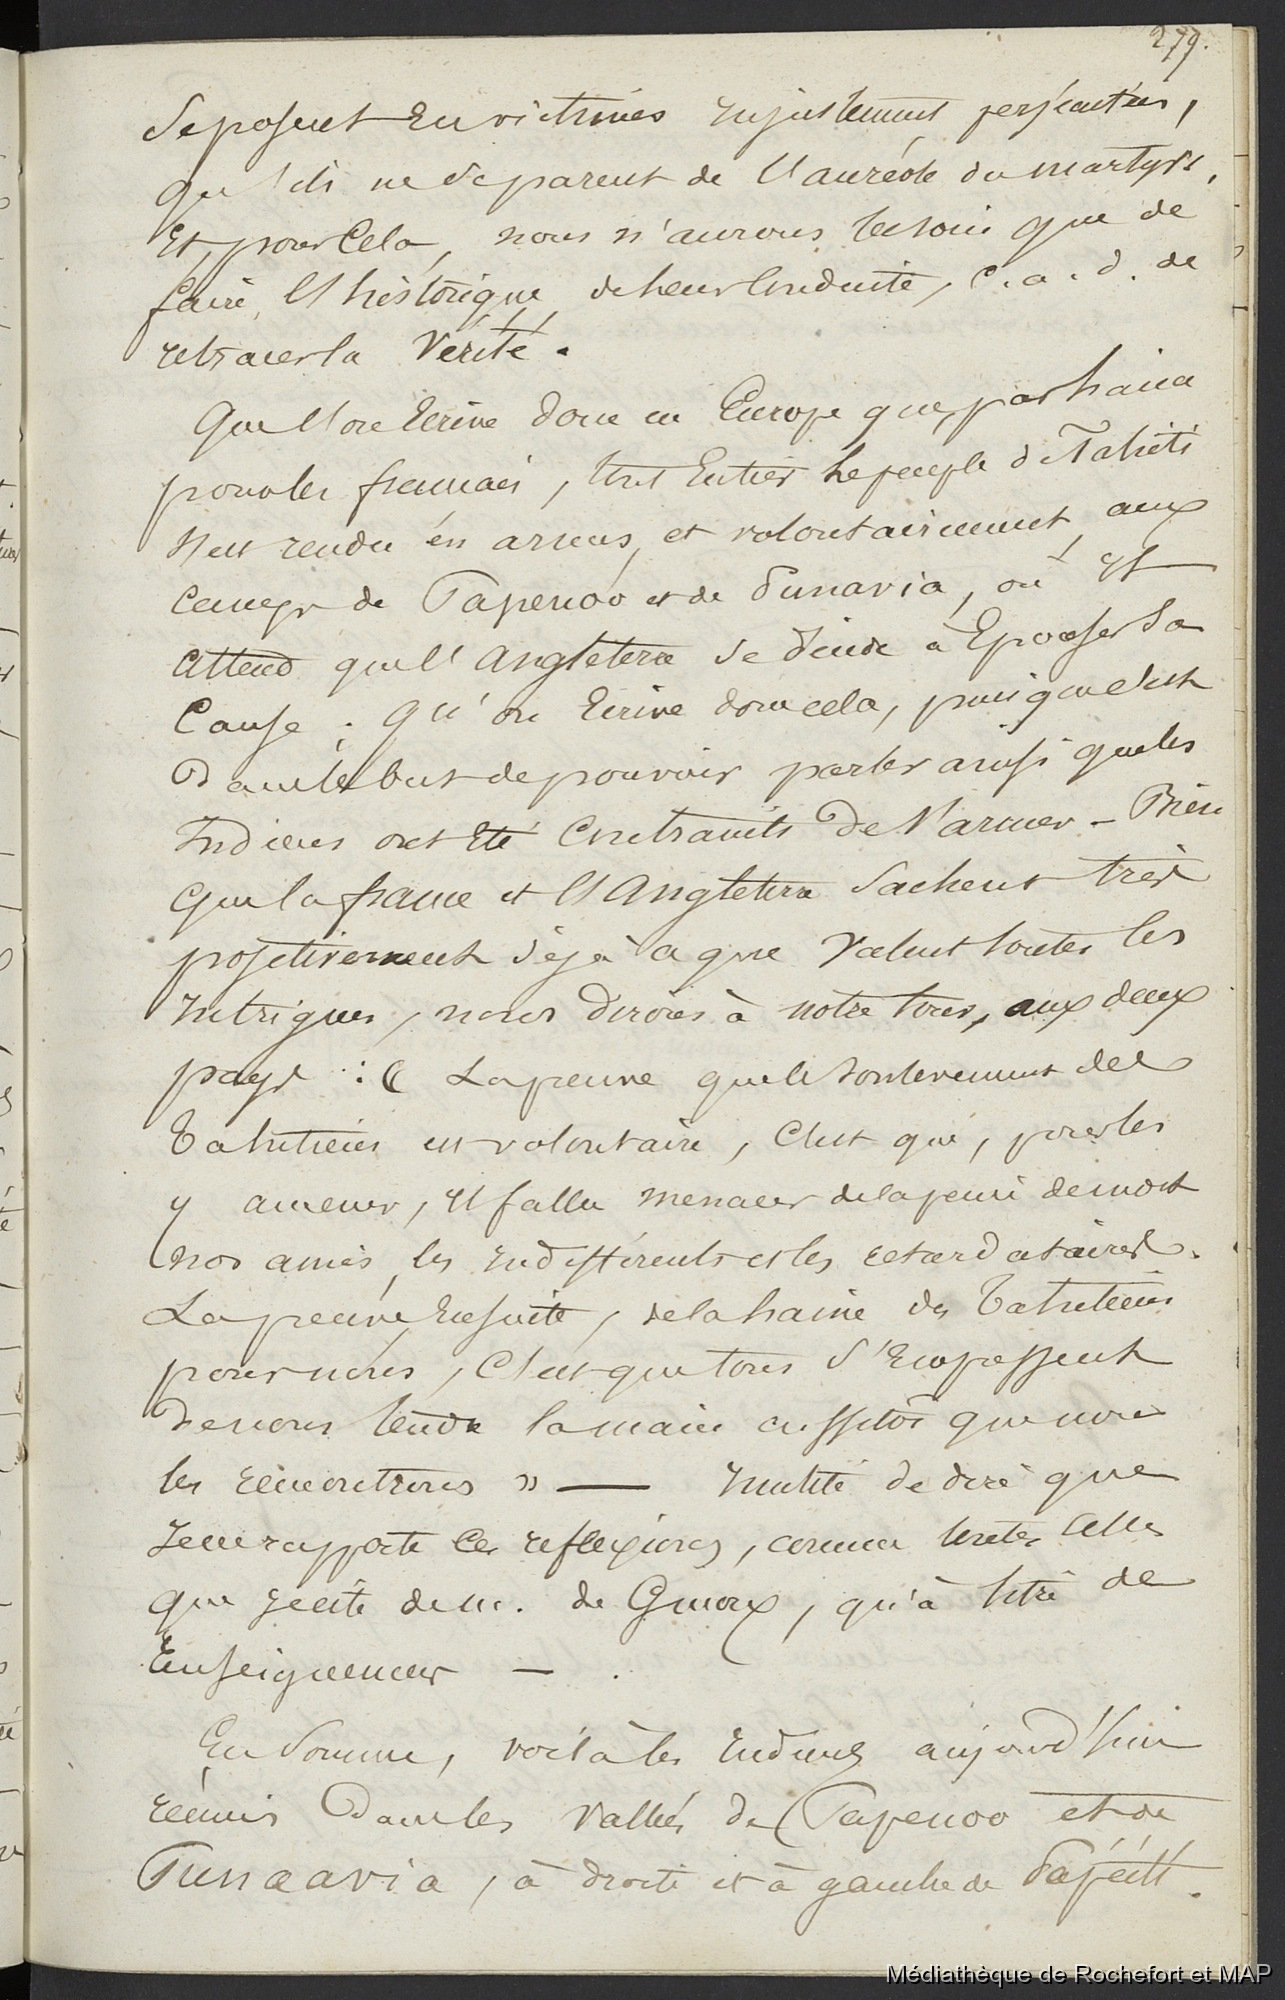 279.
se posent en victimes injustement persécutées,
qu'ils ne se parent de l'auréole du martyre,
Et, pour cela, nous n'aurons besoin que de
faire l'historique de leur conduite, c. a. d. de
retracer la vérité.
Que l'on Ecrive donc en Europe que, par haine
pour les français, tout Entier le peuple de Tahiti
s'est rendu en armes, et volontairement, aux
camps de Papenoo et de Punavia, où il
attend que l'angleterre se décide à Epouser sa
Cause ; qu'on Ecrive donc cela, puisque c'est
Dans le but de pouvoir parler ainsi que les
Indiens ont Eté Contraints de s'armer - Bien
que la france et l'Angleterre sachent très
positivement déjà ce que valent toutes les
Intrigues, nous dirons à notre tour, aux deux
pays : « La preuve que le soulevement des
Tahitiens est volontaire, c'est que, pour les
y amener, il fallu menacer de la peine de mort
nos amis, les indifférents et les retardataires.
La preuve Ensuite, de la haine des Tahitiens
pour nous, C'est que tous s'Empressent
de nous tendre la main aussitôt que nous
les rencontrons » — Inutile de dire que
Je ne rapporte ces reflexions, comme toutes celles
que je cite de m. de Ginoux, qu'à titre de
Enseignement — .
En somme, voilà les Indiens aujourd'hui
réunis Dans les Vallées de Papenoo et de
Punaavia, à droite et à gauche de Papéiti.
Médiathèque de Rochefort et MAP